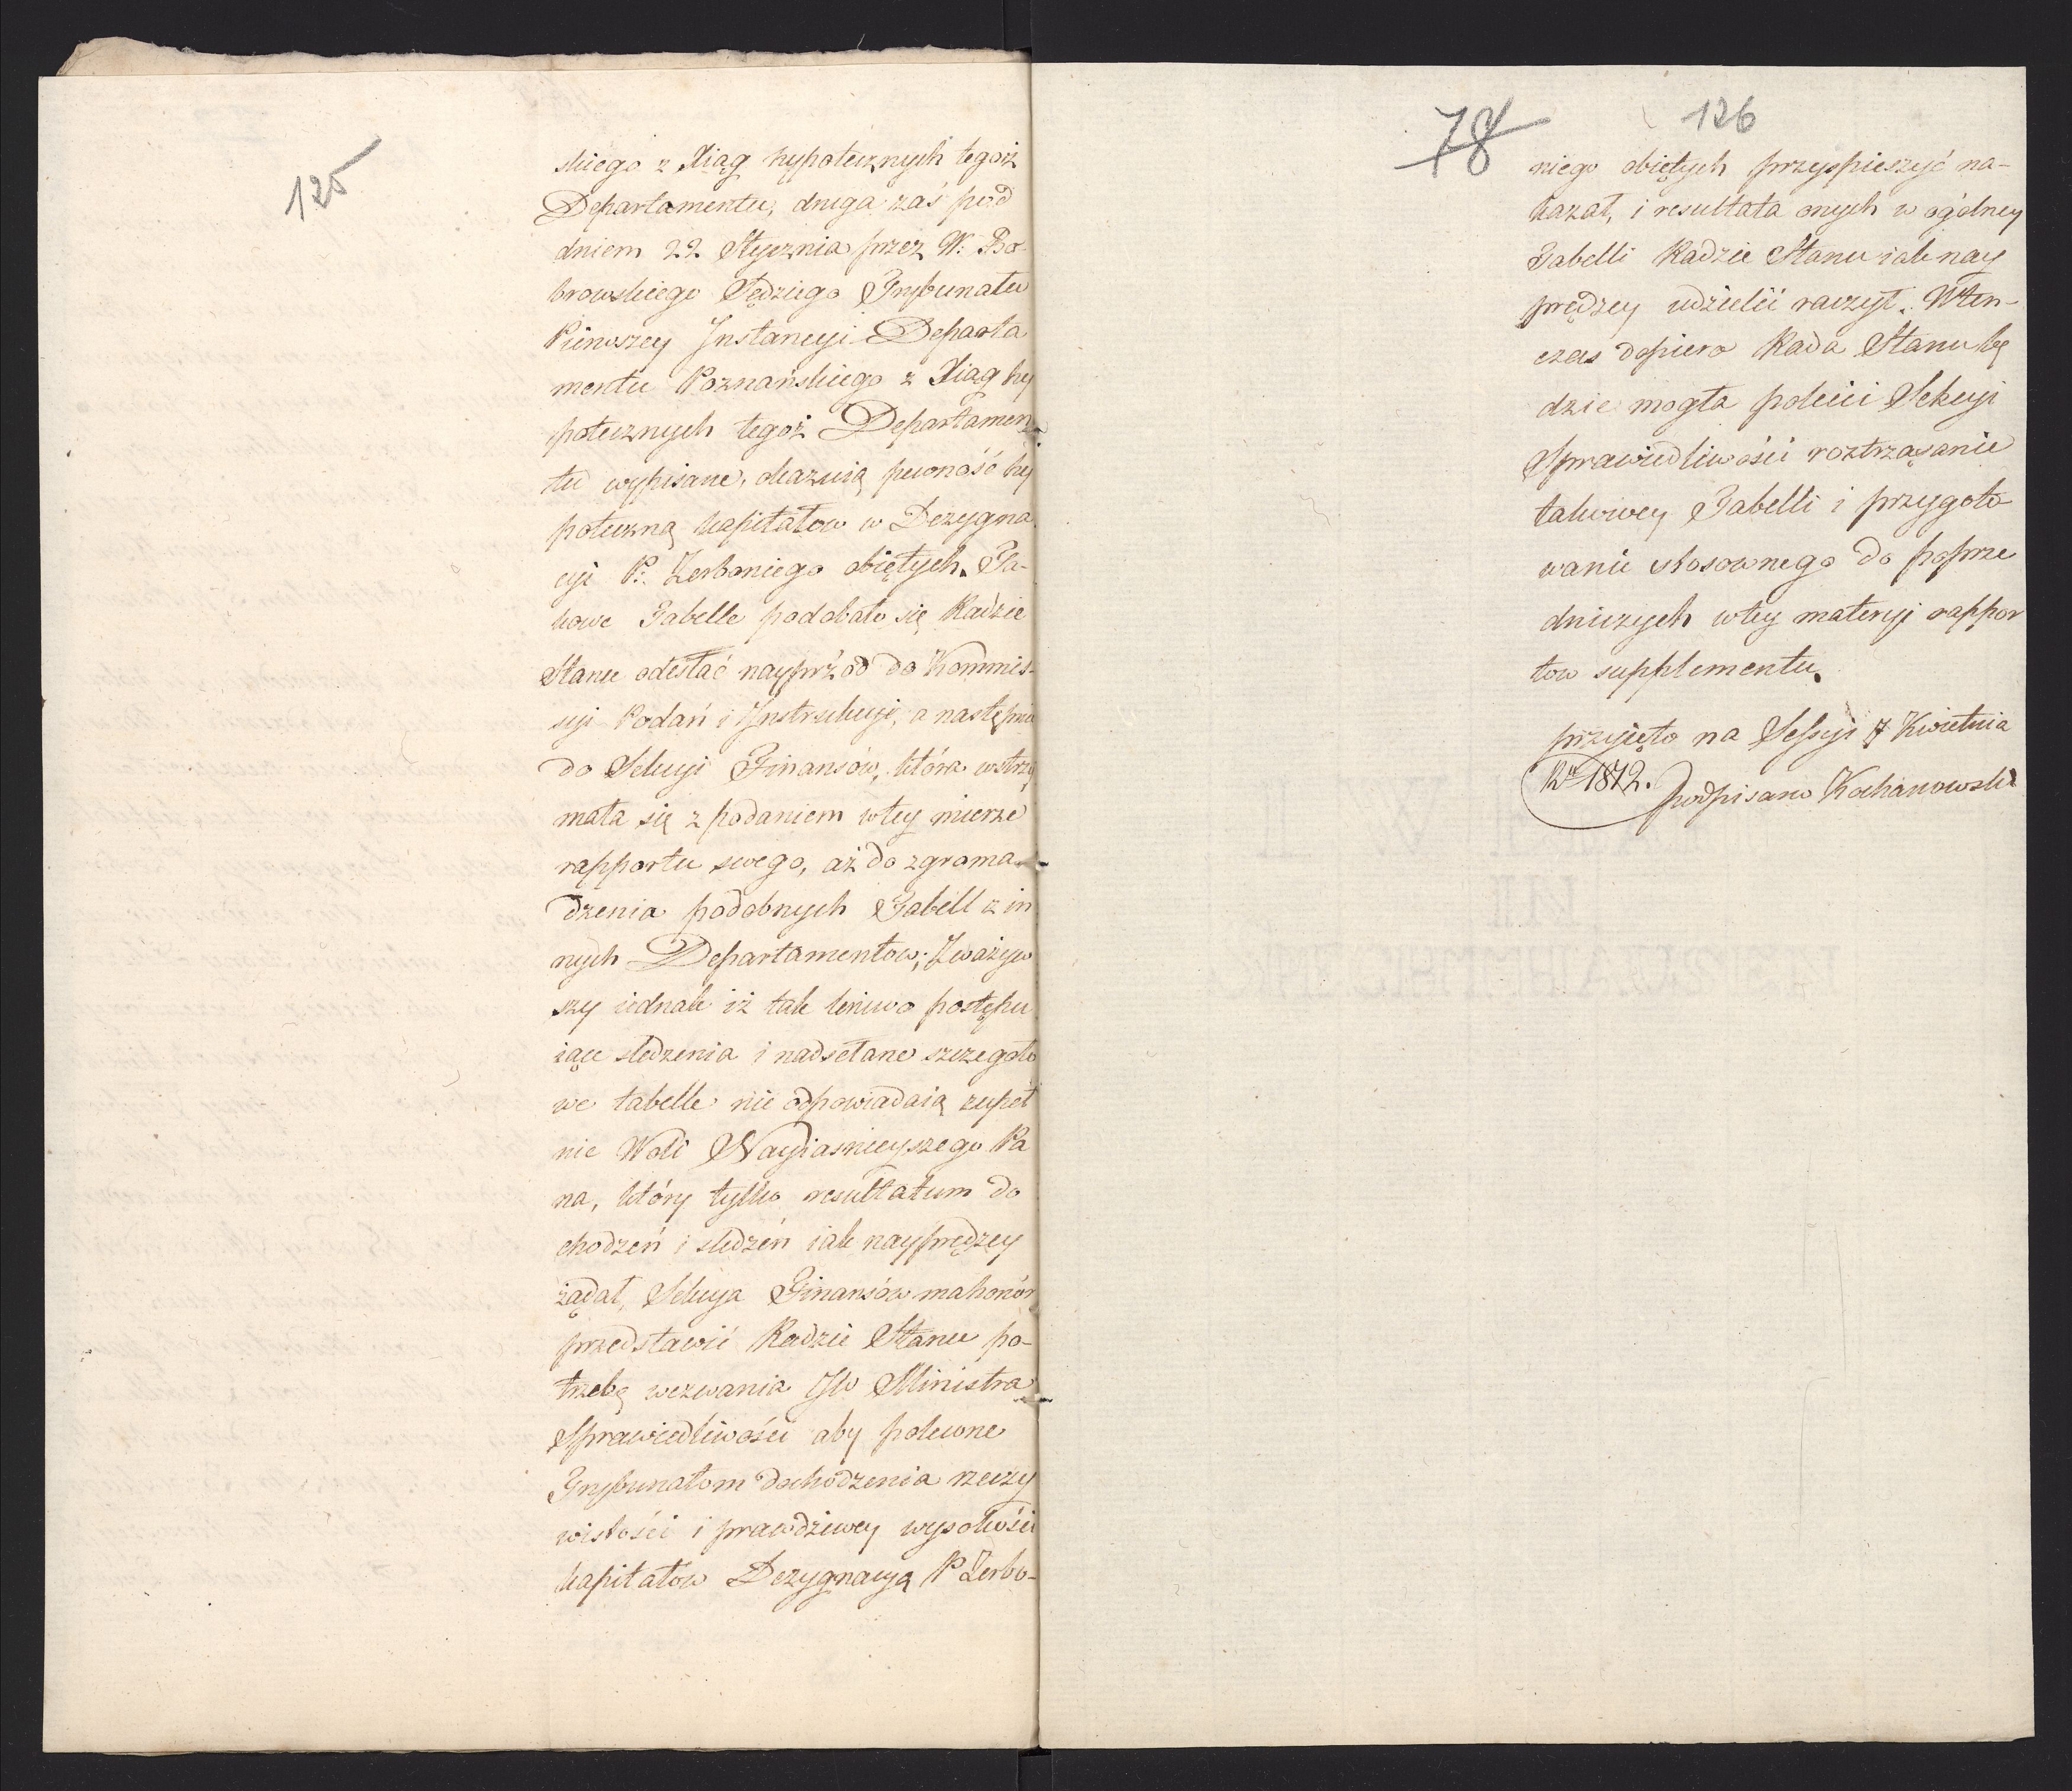 125
skiego z Xiąg hypotecznych tegoż
Departamentu, druga zaś pod
dniem 22 Stycznia przez W. Bo-
browskiego Sędziego Trybunału
Pierwszey Instancyi Departa
mentu Poznańskiego z Xiąg hy
potecznych tegoż Departamen
tu wypisane, okazuią pewność hy
poteczną kapitałow w Dezygna
cyi P. Zerboniego obiętych. Ta-
kowe Tabelle podobało się Radzie
Stanu odesłać nayprzód do Kommis-
syi Podań i Instrukcyi, a następnie
do Sekcyi Finansów, która wstrzy
mała się z podaniem w tey mierze
rapportu swego, aż do zgroma
dzenia podobnych Tabell z in
nych Departamentow; Zważyw
szy iednak iż tak leniwo postępu
iące sledzenia i nadsełane szczegoło
we tabelle nie odpowiadaią zupeł
nie Woli Nayiaśnieyszego Pa
na, który tylko resultatum do
chodzeń i sledzeń iak nayprędzey
żądał, Sekcya Finansów ma honor
przedstawić Radzie Stanu po-
trzebę wezwania JW Ministra
Sprawiedliwości aby polecone
Trybunałom dochodzenia rzeczy
wistości i prawdziwey wysokości
kapitałow Dezygnacyą P Zerbo-
78
126
niego obiętych przyspieszyć na-
kazał, i resultata onych w ogólney
Tabelli Radzie Stanu iak nay
prędzey udzielić raczył. Wten-
czas dopiero Rada Stanu bę
dzie mogła polecić Sekcyi
Sprawiedliwości roztrząsanie
takowey Tabelli i przygoto
wanie stosownego do poprze
dniczych w tey materyi rappor
tow supplementu.
przyięto na Sessyi 7 Kwietnia
Rku 1812. podpisano Kochanowski